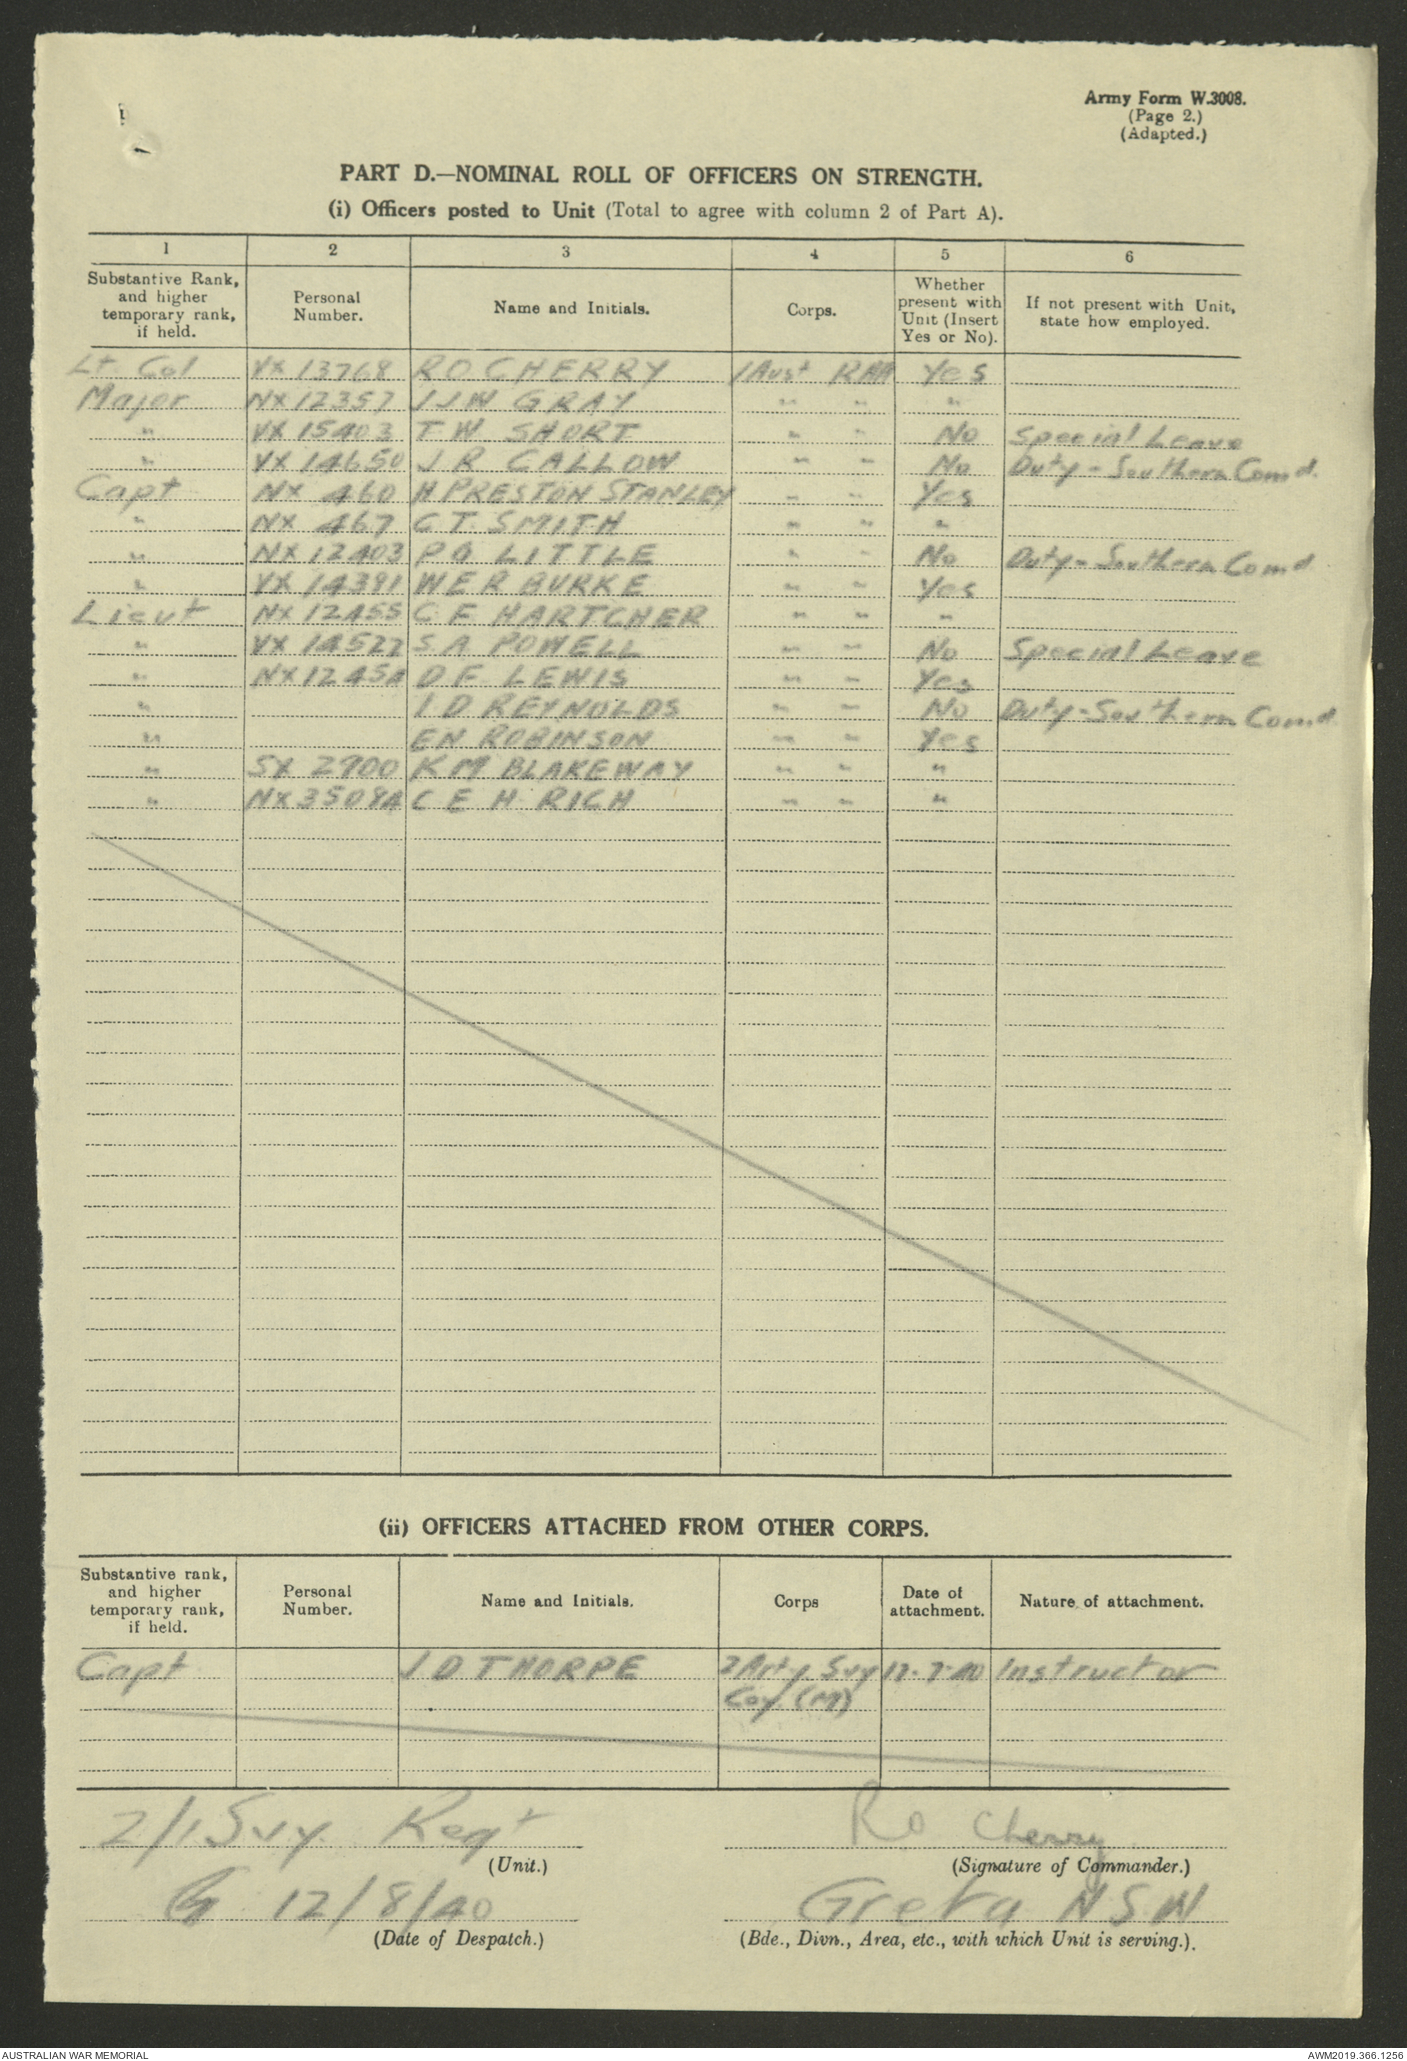 Army Form W.3008.
(Page 2.)
(Adapted.)
PART D.—NOMINAL ROLL OF OFFICERS ON STRENGTH.
(i) Officers posted to Unit (Total to agree with column 2 of Part A).
1 2 3 4 5 6
Substantive Rank, and higher temporary rank, if held. Personal Number. Name and Initials. Corps. Whether present with Unit (Insert Yes or No). If not present with Unit, state how employed.
Lt Col VX 13768 R O CHERRY 1 Aust RAA Yes
Major NX 12357 J J W GRAY " " "
" VX 15403 T W SHORT " " No Special Leave
" VX 14650 J R CALLOW " " No Duty - Southern Comd.
Capt NX 460 H PRESTON STANLEY " " Yes
" NX 467 C T SMITH " " "
" NX 12403 P G LITTLE " " No Duty - Southern Comd
" VX 14391 W E R BURKE " " Yes
Lieut NX 12455 C F HARTCHER " " "
" VX 14522 S. A POWELL " " No Special Leave
" NX 12454 D F LEWIS " " Yes
" I D REYNOLDS " " No Duty - Southern Comd
" E N ROBINSON " " Yes
" SX 2900 K M BLAKEWAY " " "
" NX 35094 C E H RICH " " "
(ii) OFFICERS ATTACHED FROM OTHER CORPS.
Substantive rank, and higher temporary rank, if held. Personal Number. Name and Initials. Corps Date of attachment. Nature of attachment.
Capt J D THORPE 2 Arty Svy 17-7-40 Instructor
Coy (M)
2/1 Svy Regt R O Cherry
(Unit.) (Signature of Commander.)
12/8/40 Greta N S W
(Date of Despatch.) (Bde., Divn., Area, etc., with which Unit is serving.).
AUSTRALIAN WAR MEMORIAL AWM2019.366.1256